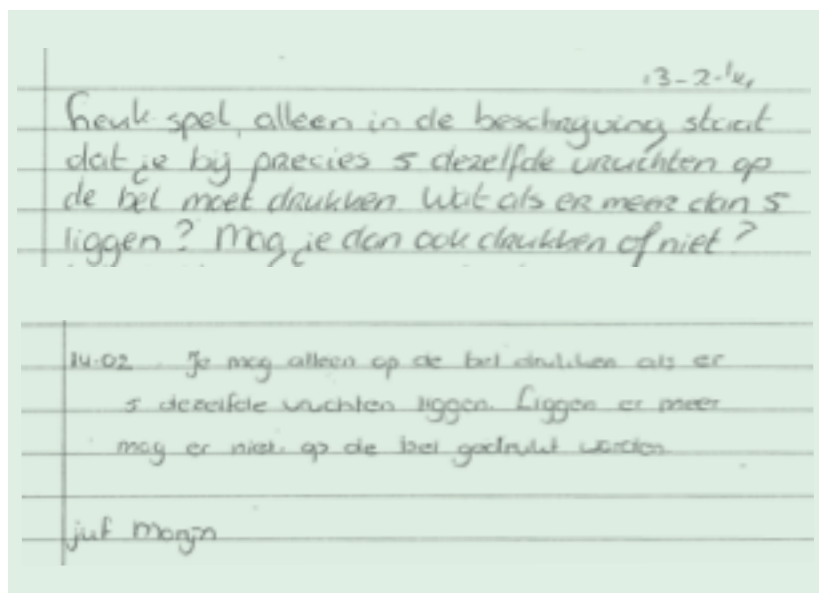 13-2-'14
Leuk spel, alleen in de beschrijving staat
dat je bij precies 5 dezelfde vruchten op
de bel moet drukken. Wat als er meer dan 5
liggen? Mag je dan ook drukken of niet?
14-02 Je mag alleen op de bel drukken als er
5 dezelfde vruchten liggen. Liggen er meer
mag er niet op de bel gedrukt worden.
juf